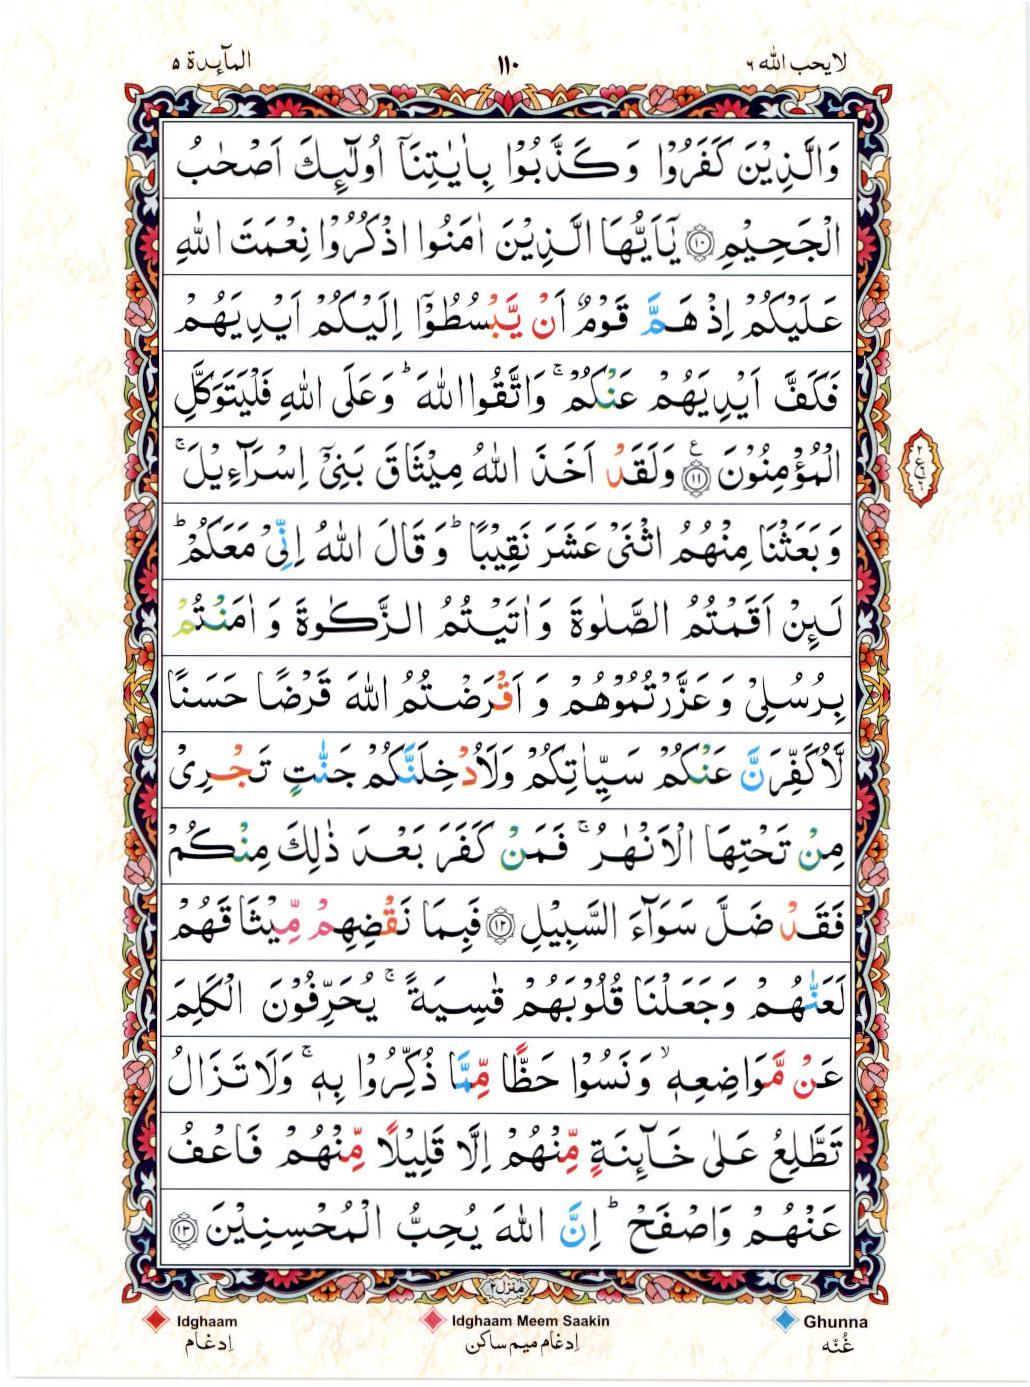 لايحب الله ٦
١١٠
المآىِٕدة ٥
وَالَّذِيْنَ كَفَرُوْا وَكَذَّبُوْا بِاٰيٰتِنَاۤ اُولٰٓىِٕكَ اَصْحٰبُ
الْجَحِيْمِ ۝١٠ يٰۤاَيُّهَا الَّذِيْنَ اٰمَنُوا اذْكُرُوْا نِعْمَتَ اللّٰهِ
عَلَيْكُمْ اِذْ هَمَّ قَوْمٌ اَنْ يَّبْسُطُوْۤا اِلَيْكُمْ اَيْدِيَهُمْ
فَكَفَّ اَيْدِيَهُمْ عَنْكُمْ ۚ وَاتَّقُوا اللّٰهَ ؕ وَعَلَى اللّٰهِ فَلْيَتَوَكَّلِ
الْمُؤْمِنُوْنَ ۝١١ ع وَلَقَدْ اَخَذَ اللّٰهُ مِيْثَاقَ بَنِيْۤ اِسْرَآءِيْلَ ۚ
وَبَعَثْنَا مِنْهُمُ اثْنَيْ عَشَرَ نَقِيْبًا ؕ وَقَالَ اللّٰهُ اِنِّيْ مَعَكُمْ ؕ
لَىِٕنْ اَقَمْتُمُ الصَّلٰوةَ وَاٰتَيْتُمُ الزَّكٰوةَ وَاٰمَنْتُمْ
بِرُسُلِيْ وَعَزَّرْتُمُوْهُمْ وَاَقْرَضْتُمُ اللّٰهَ قَرْضًا حَسَنًا
لَّاُكَفِّرَنَّ عَنْكُمْ سَيِّاٰتِكُمْ وَلَاُدْخِلَنَّكُمْ جَنّٰتٍ تَجْرِيْ
مِنْ تَحْتِهَا الْاَنْهٰرُ ۚ فَمَنْ كَفَرَ بَعْدَ ذٰلِكَ مِنْكُمْ
فَقَدْ ضَلَّ سَوَآءَ السَّبِيْلِ ۝١٢ فَبِمَا نَقْضِهِمْ مِّيْثَاقَهُمْ
لَعَنّٰهُمْ وَجَعَلْنَا قُلُوْبَهُمْ قٰسِيَةً ۚ يُحَرِّفُوْنَ الْكَلِمَ
عَنْ مَّوَاضِعِهٖ ۙ وَنَسُوْا حَظًّا مِّمَّا ذُكِّرُوْا بِهٖ ۚ وَلَا تَزَالُ
تَطَّلِعُ عَلٰى خَآىِٕنَةٍ مِّنْهُمْ اِلَّا قَلِيْلًا مِّنْهُمْ فَاعْفُ
عَنْهُمْ وَاصْفَحْ ؕ اِنَّ اللّٰهَ يُحِبُّ الْمُحْسِنِيْنَ ۝١٣
منزل ٢
Idghaam Idghaam Meem Saakin Ghunna
اِدغام اِدغام ميم ساكن غُنّه